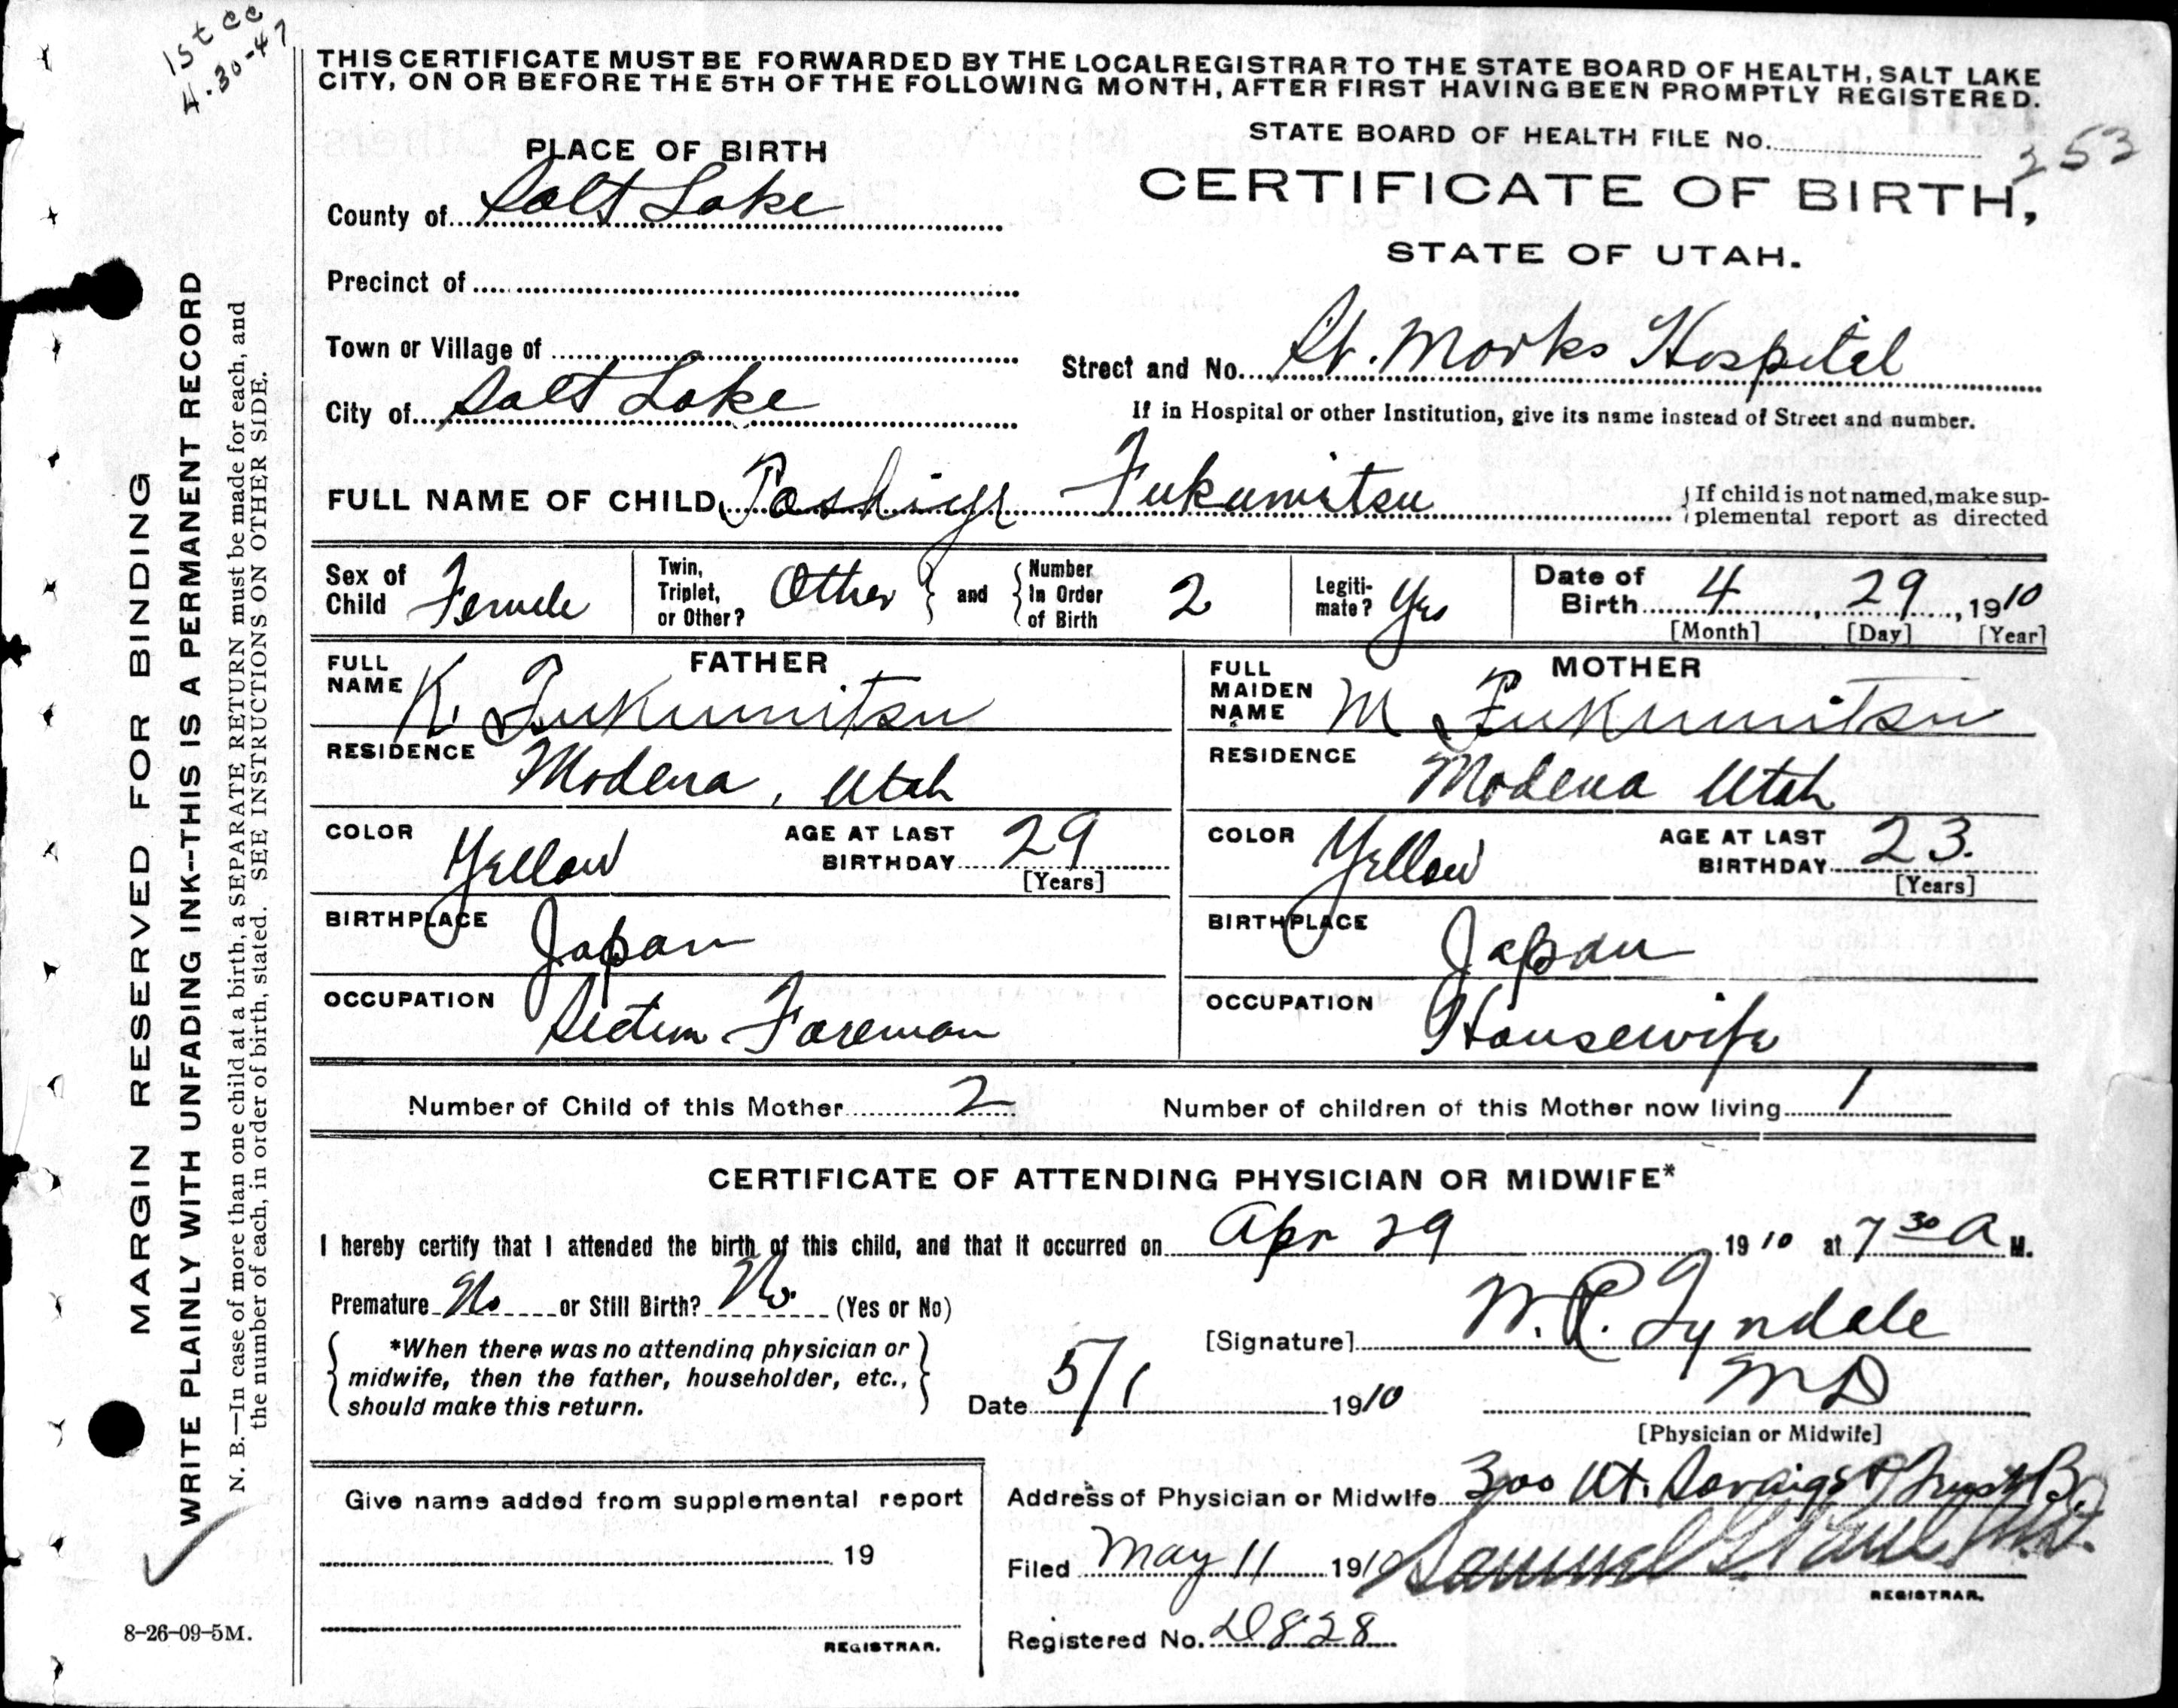 1st cc
4-30-47
THIS CERTIFICATE MUST BE FORWARDED BY THE LOCAL REGISTRAR TO THE STATE BOARD OF HEALTH, SALT LAKE
CITY, ON OR BEFORE THE 5TH OF THE FOLLOWING MONTH, AFTER FIRST HAVING BEEN PROMPTLY REGISTERED.
STATE BOARD OF HEALTH FILE No. 353
PLACE OF BIRTH
CERTIFICATE OF BIRTH,
STATE OF UTAH.
County of Salt Lake
Precinct of
Town or Village of
Street and No. St. Marks Hospital
City of Salt Lake
If in Hospital or other Institution, give its name instead of Street and number.
FULL NAME OF CHILD Fukumitsu
If child is not named, make sup-
plemental report as directed
Sex of Child Female
Twin, Triplet, or Other? Other and Number In Order of Birth 2
Legiti-mate? Yes
Date of Birth 4, 29, 1910
[Month] [Day] [Year]
FATHER
FULL NAME K. Fukumitsu
RESIDENCE Modena, Utah
COLOR Yellow AGE AT LAST BIRTHDAY 29
[Years]
BIRTHPLACE Japan
OCCUPATION Section Foreman
MOTHER
FULL MAIDEN NAME M Fukumitsu
RESIDENCE Modena Utah
COLOR Yellow AGE AT LAST BIRTHDAY 23.
[Years]
BIRTHPLACE Japan
OCCUPATION Housewife
Number of Child of this Mother 2 Number of children of this Mother now living 1
CERTIFICATE OF ATTENDING PHYSICIAN OR MIDWIFE*
I hereby certify that I attended the birth of this child, and that it occurred on Apr 29 1910 at 7 30 A M.
Premature No or Still Birth? No. (Yes or No)
*When there was no attending physician or
midwife, then the father, householder, etc.,
should make this return.
[Signature] W. R. Tyndale
Date 5/1 1910 MD
[Physician or Midwife]
Give name added from supplemental report
19
REGISTRAR.
Address of Physician or Midwife 300 Ut. Savings & Trust B.
Filed May 11 1910 Samuel G. Paul M.D.
REGISTRAR.
Registered No. D828
MARGIN RESERVED FOR BINDING
WRITE PLAINLY WITH UNFADING INK--THIS IS A PERMANENT RECORD
N. B.—In case of more than one child at a birth, a SEPARATE RETURN must be made for each, and
the number of each, in order of birth, stated. SEE INSTRUCTIONS ON OTHER SIDE.
8-26-09-5M.